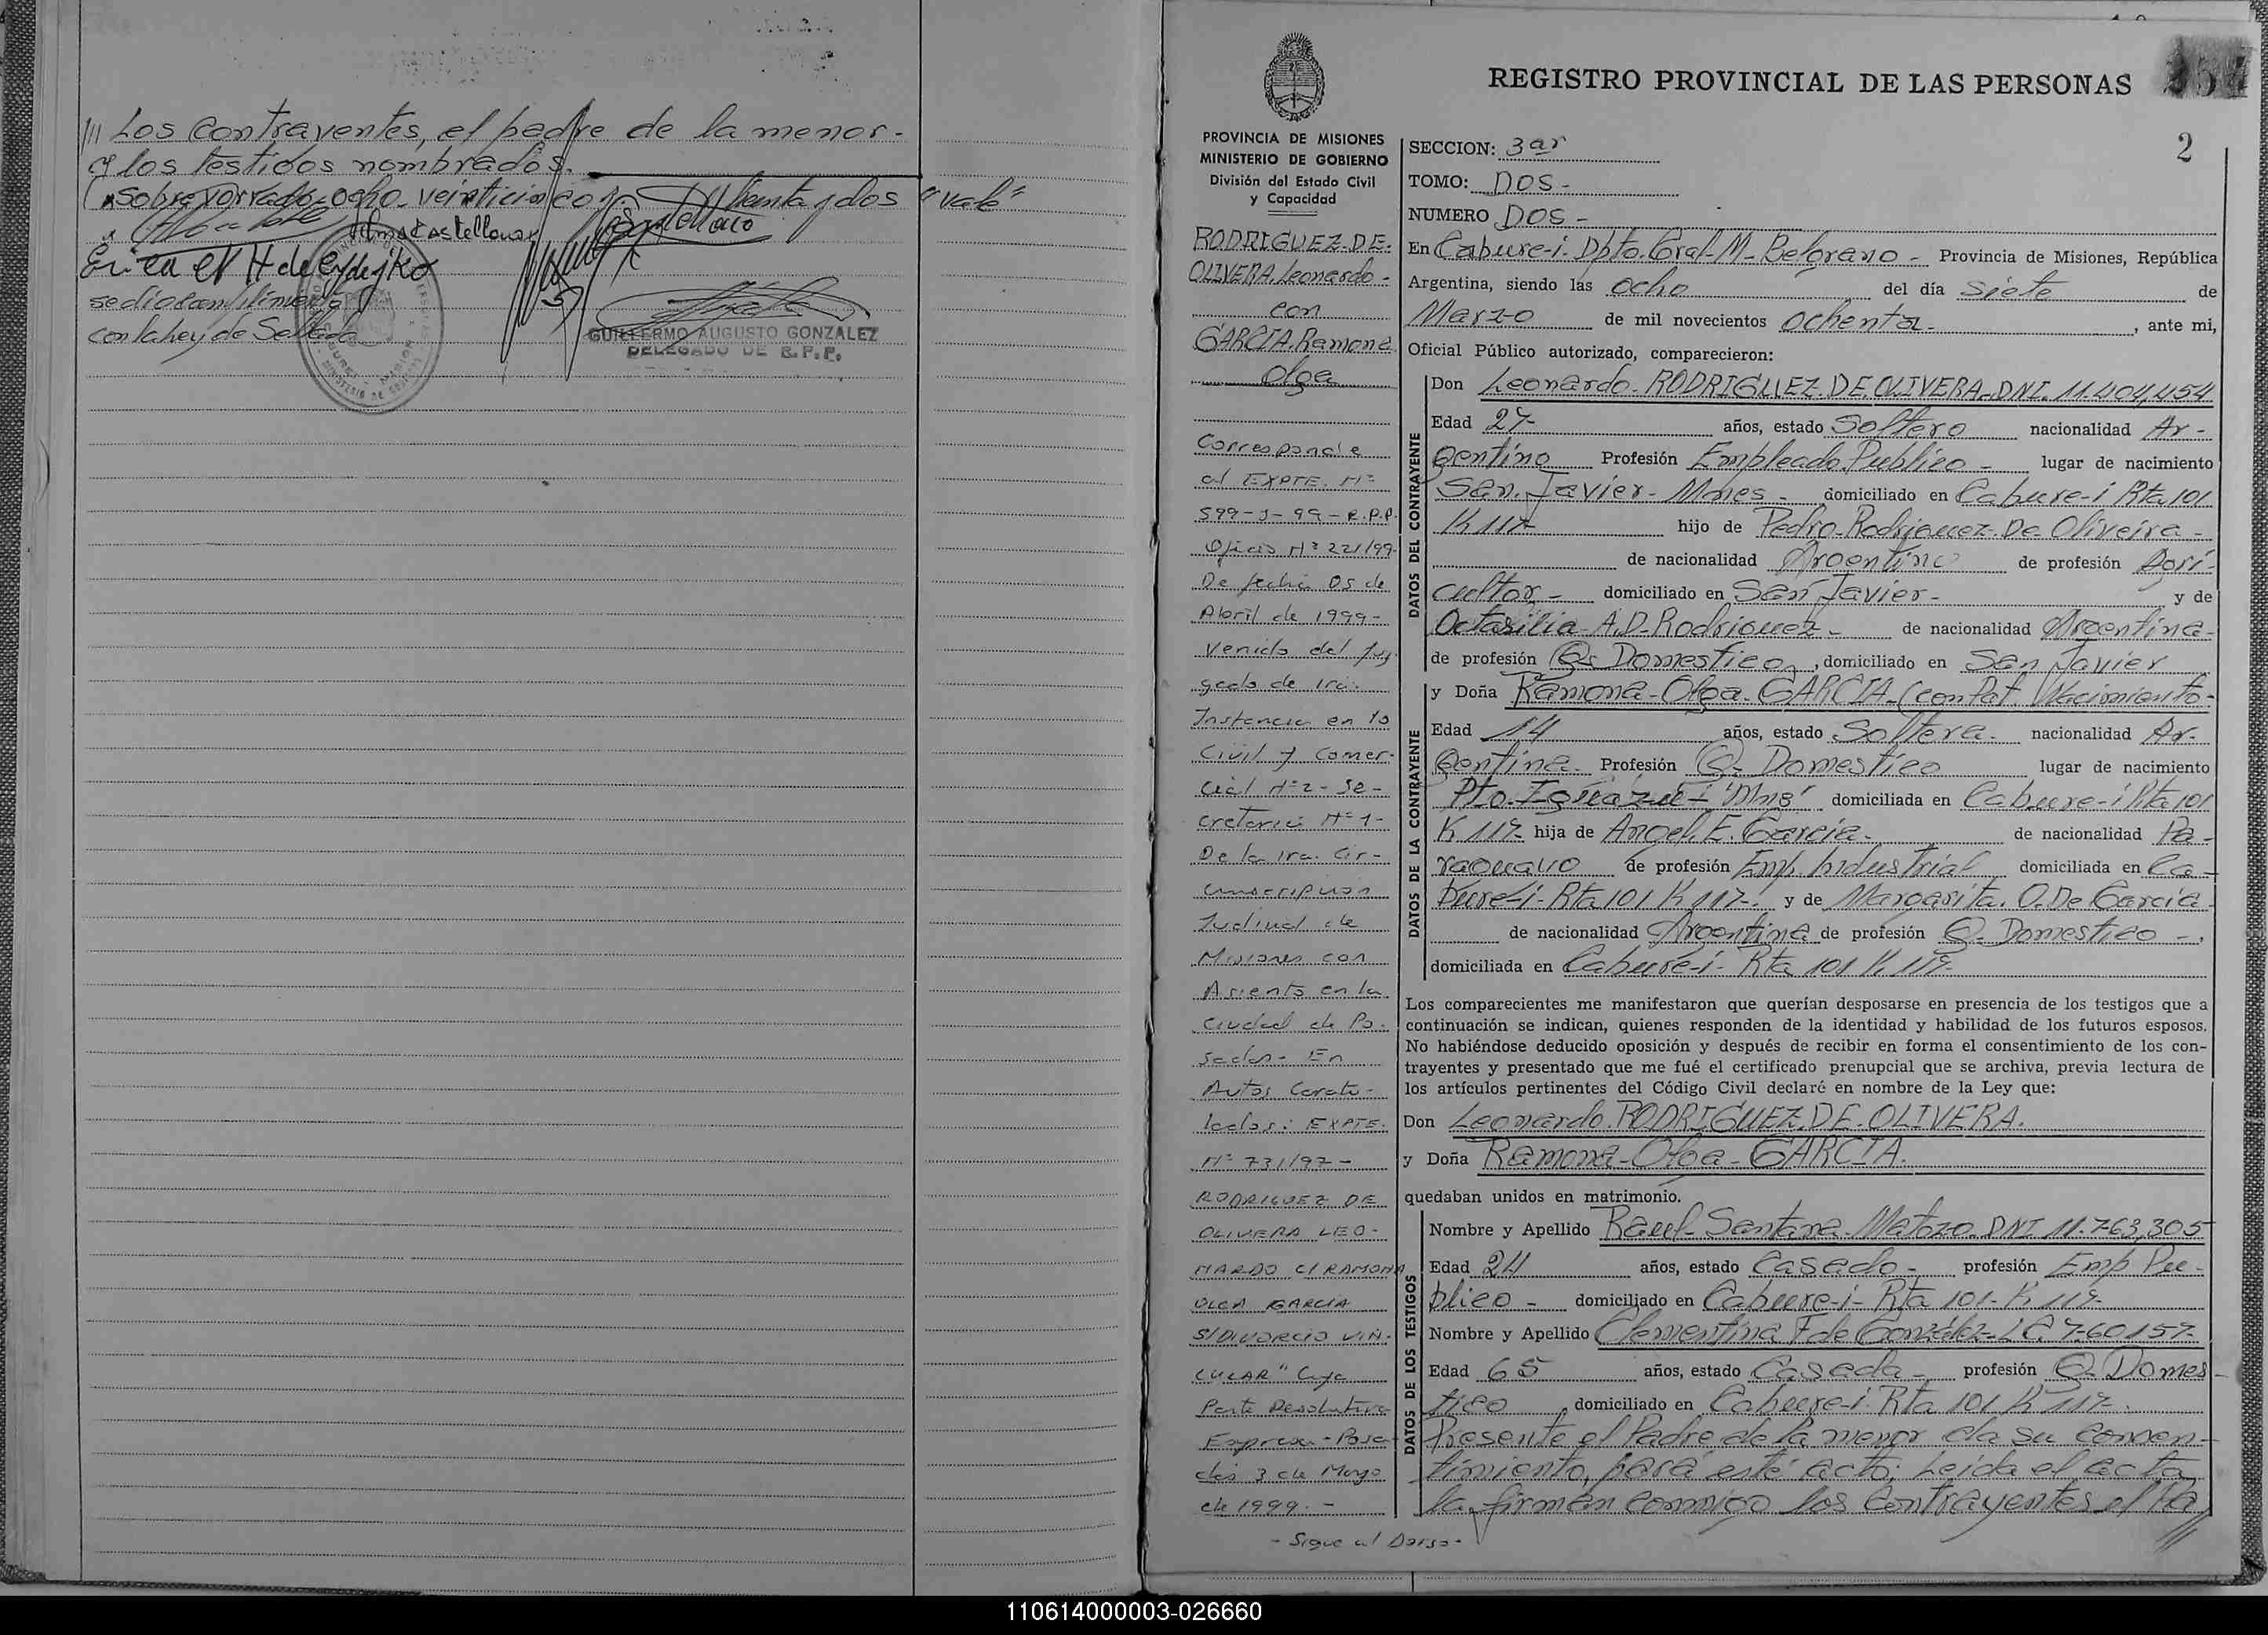 /// Los Contrayentes, el padre de la menor -
y los testigos nombrados.
Sobre borrado - ocho - veinticinco y treinta y dos "vale"
Ilma Castellano
Erica el H de
se dio cumplimiento
con la Ley de Sellado
GUILLERMO AUGUSTO GONZALEZ
DELEGADO DE R.P.P.
REGISTRO PROVINCIAL DE LAS PERSONAS
2
PROVINCIA DE MISIONES
MINISTERIO DE GOBIERNO
División del Estado Civil
y Capacidad
RODRIGUEZ DE.
OLIVERA, Leonardo -
con
GARCIA, Ramona
Olga
Corresponde
al EXPTE. Nº
599-J-99-R.P.P.
Oficio Nº 221/99
De fecha 05 de
Abril de 1999-
Venido del Juz
gado de 1ra.
Instancia en lo
Civil y Comer-
cial Nº 2 - Se-
cretaria Nº 1-
De la 1ra. Cir-
cunscripcion
Judicial de
Misiones con
Asiento en la
Ciudad de Po-
sadas - En
Autos Caratu-
lados: EXPTE.
Nº 731/97 -
RODRIGUEZ DE
OLIVERA LEO-
NARDO C/ RAMONA
OLGA GARCIA
S/DIVORCIO VIN-
CULAR" Cuya
Parte Resolutiva
Expresa - Posa-
das 3 de Mayo
de 1999. -
- Sigue al Dorso -
SECCION: 3ar
TOMO: DOS -
NUMERO DOS -
En Cabure-i. Dpto. Gral-M-Belgrano - Provincia de Misiones, República
Argentina, siendo las Ocho del día Siete de
Marzo de mil novecientos Ochenta - , ante mi,
Oficial Público autorizado, comparecieron:
DATOS DEL CONTRAYENTE
Don Leonardo - RODRIGUEZ DE OLIVERA - DNI. 11.404,454
Edad 27- años, estado Soltero nacionalidad Ar-
gentino Profesión Empleado Publico - lugar de nacimiento
San Javier - Mnes - domiciliado en Cabure-i Rta 101
K 117- hijo de Pedro - Rodriguez - De - Oliveira -
de nacionalidad Argentino de profesión Agri-
cultor - domiciliado en San Javier - y de
Octasilia - A.D - Rodriguez - de nacionalidad Argentina -
de profesión Q. Domestico, domiciliado en San Javier
DATOS DE LA CONTRAYENTE
y Doña Ramona - Olga - GARCIA - (con Pat. Nacimiento -
Edad 14 años, estado Soltera - nacionalidad Ar-
gentina - Profesión Q. Domestico lugar de nacimiento
Pto. Iguazu - "Mns" domiciliada en Cabure-i Rta 101
K 117- hija de Angel. E. Garcia - de nacionalidad Pa-
raguayo de profesión Emp. Industrial domiciliada en Ca-
bure-i - Rta 101 K 117-. y de Margarita. O. De Garcia -
de nacionalidad Argentina de profesión Q. Domestico -,
domiciliada en Cabure-i - Rta 101 K. 117-
Los comparecientes me manifestaron que querían desposarse en presencia de los testigos que a
continuación se indican, quienes responden de la identidad y habilidad de los futuros esposos.
No habiéndose deducido oposición y después de recibir en forma el consentimiento de los con-
trayentes y presentado que me fué el certificado prenupcial que se archiva, previa lectura de
los artículos pertinentes del Código Civil declaré en nombre de la Ley que:
Don Leonardo. RODRIGUEZ. DE. OLIVERA.
y Doña Ramona - Olga - GARCIA.
quedaban unidos en matrimonio.
DATOS DE LOS TESTIGOS
Nombre y Apellido Raul - Santana - Matozo. DNI 11.763,305
Edad 24 años, estado Casado - profesión Emp Pu-
blico - domiciliado en Cabure-i - Rta 101- K. 117-
Nombre y Apellido Clementina F de González - LC. 7-60157-
Edad 65 años, estado Casada - profesión Q. Domes-
tico domiciliado en Cabure-i. Rta 101 K 117-.
Presente el Padre de la menor da su consen-
timiento, para este acto; Leida el acta
la firman conmigo los Contrayentes el Pa
///
110614000003-026660